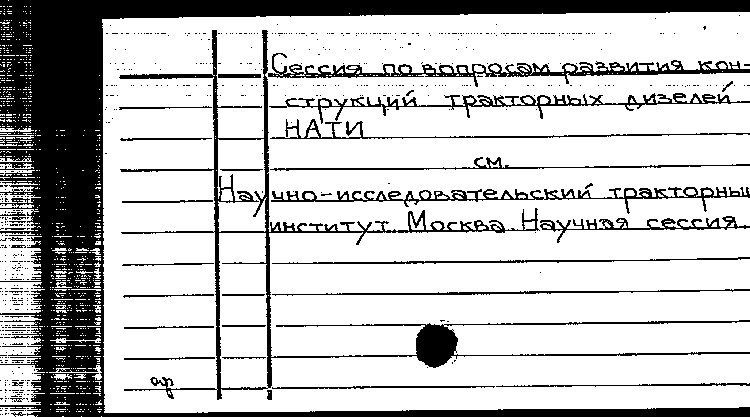 Сессия по вопросам развития кон-
струкций тракторных дизелей
НАТИ
см.
Научно-исследовательский тракторны
институт. Москва. Научная сессия.
ар